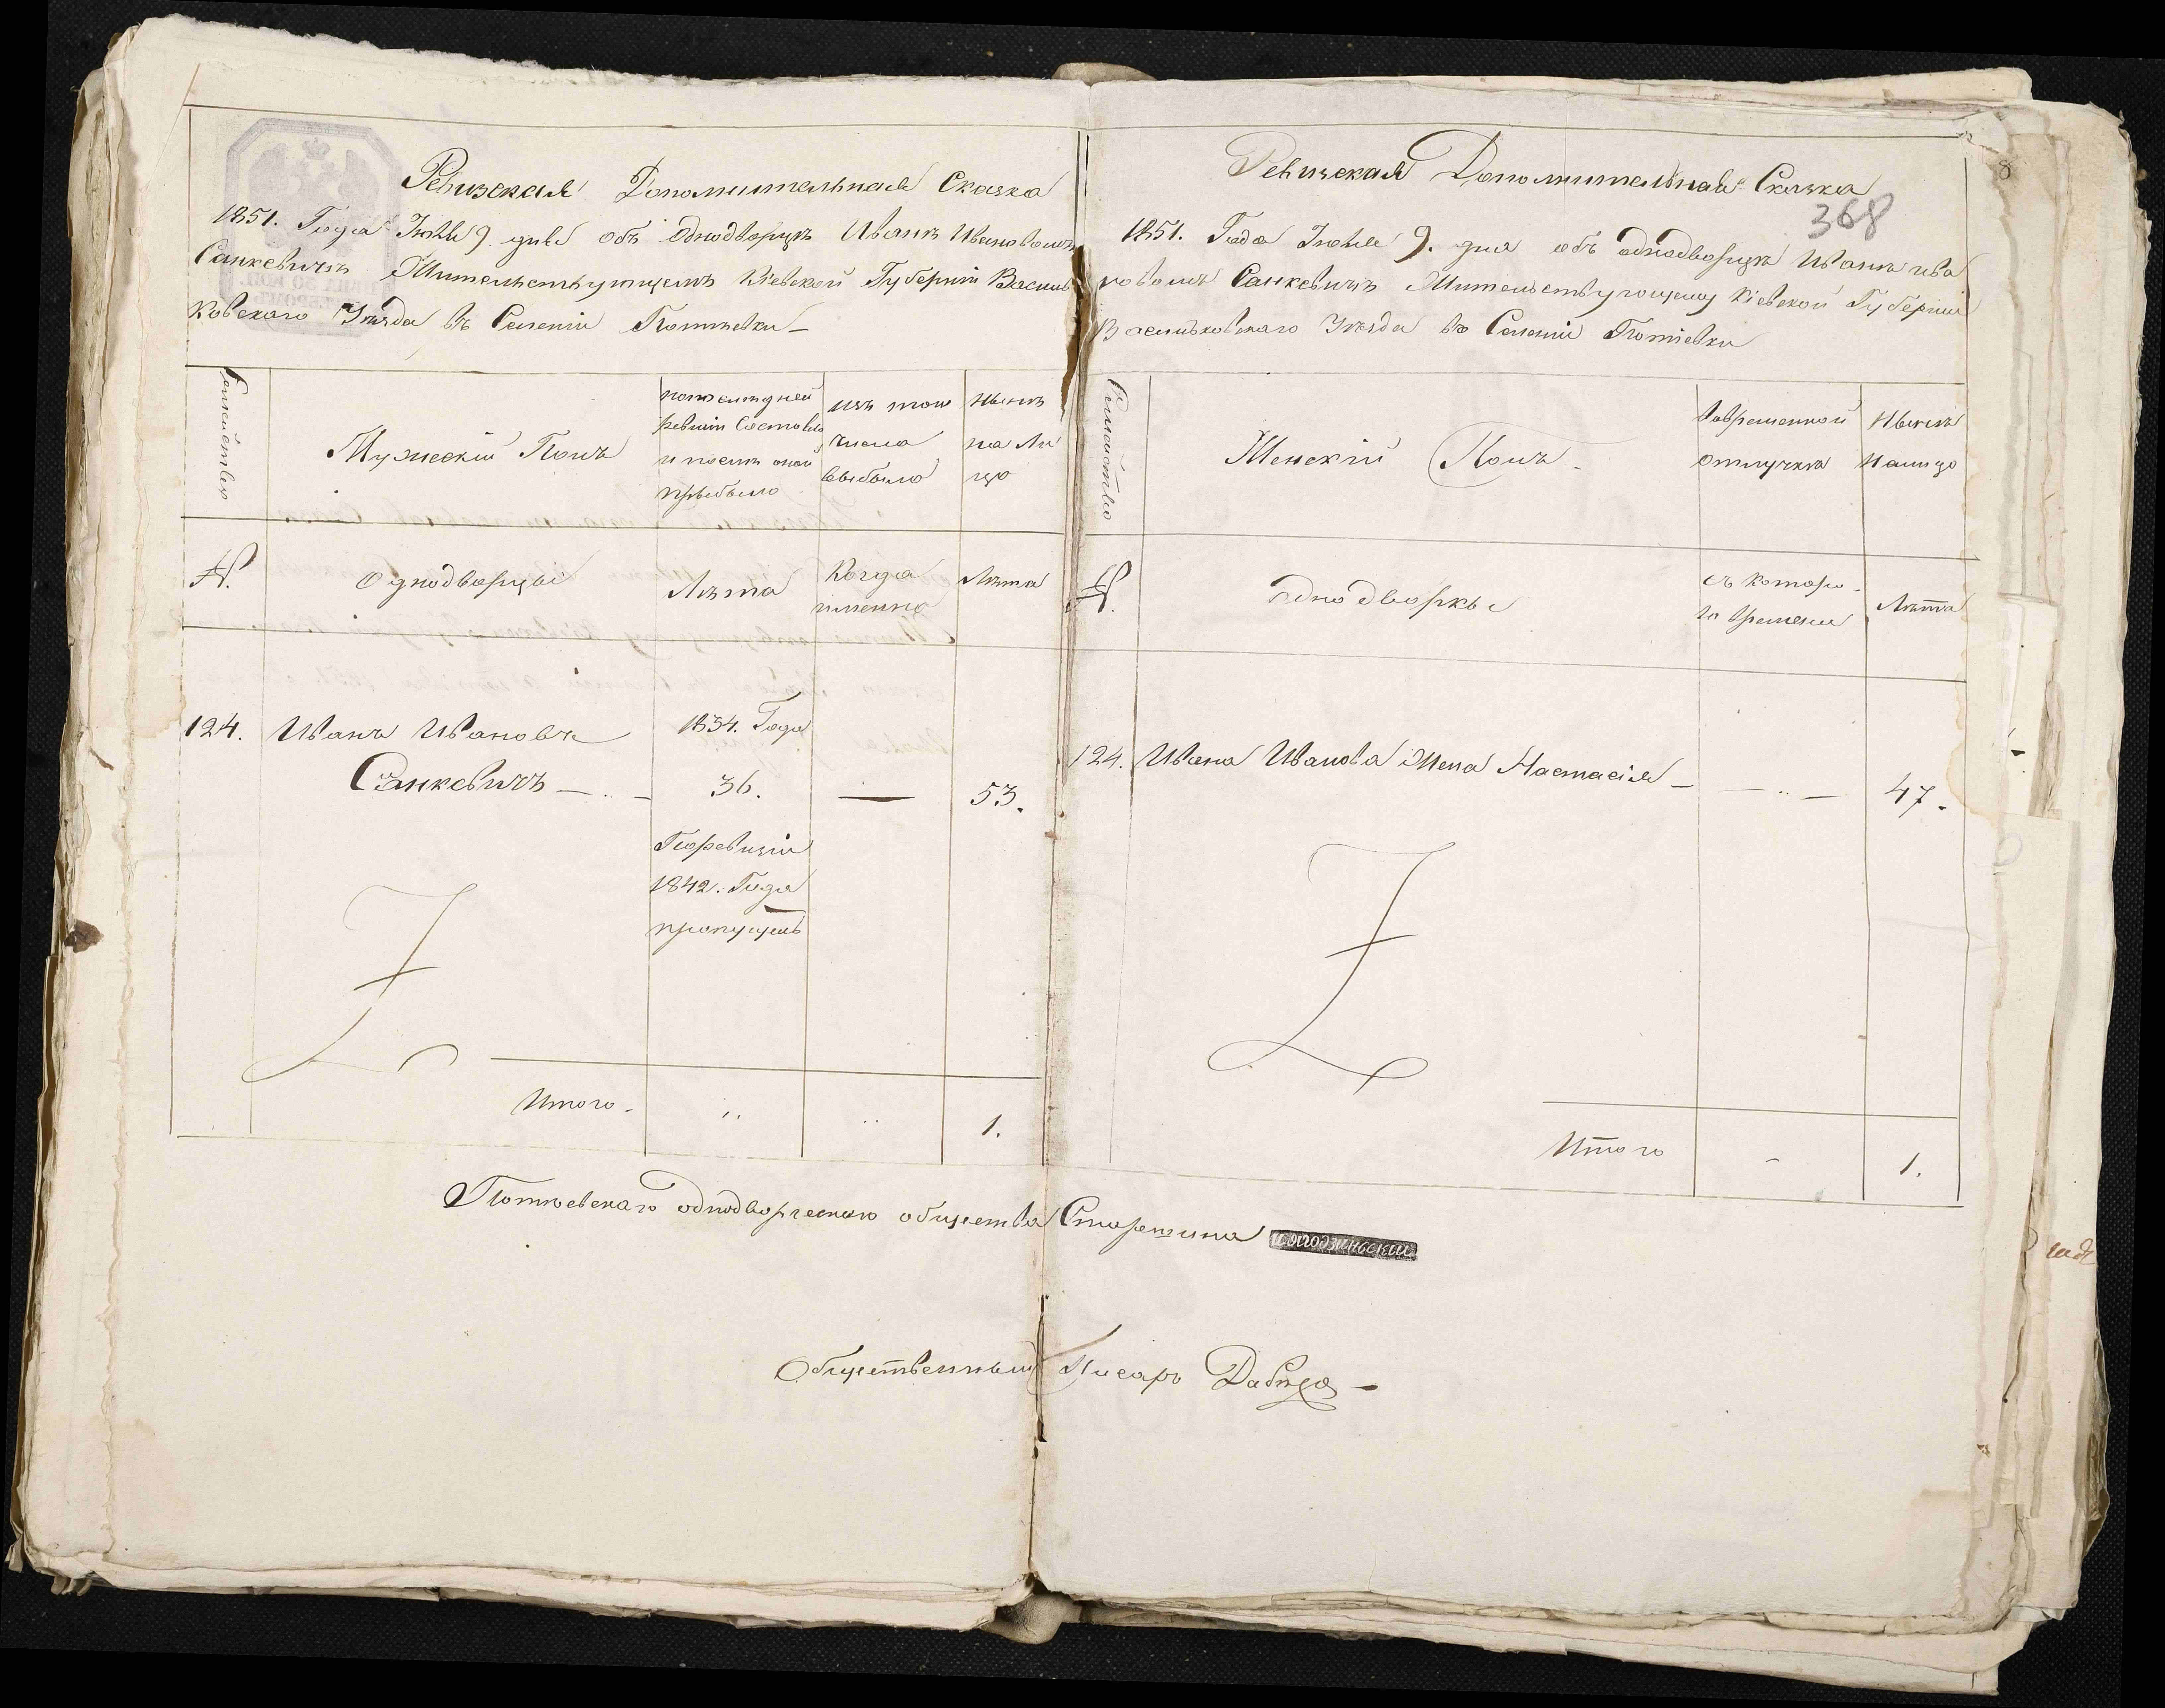 Ревизская Дополнительная Сказка
1851. Года Іюня 9 дня объ однодворцѣ Иванѣ Ивановомъ
Санкевичѣ Жительствующемъ Кіевской Губерніи Василь
ковскаго Уѣзда въ Селеніи Потіевки
Семейства
Мужескій Полъ
попослѣдней
ревизіи Состояло
и послѣ оной
прибыло
изъ того
числа
выбыло
нынѣ
на Ли
цо
№.
Однодворцы
Лѣта
Когда
именно
Лѣта
124.
Иванъ Ивановъ
Санкевичъ
1834. Года
36.
—
53.
Поревизіи
1842. Года
пропущенъ
Итого.
1.
Ревизская Дополнительная Сказка
368
8
1851. Года Іюня 9. дня объ однодворцѣ Иванѣ Ива
новомъ Санкевичѣ Жительствующему Кіевской Губерніи
Васильковскаго Уѣзда въ Селеніи Потіевки
Семейство
Женскій Полъ
Вовременной
отлучкѣ
Нынѣ
Налицо
№.
Однодворки
съ которо
го времени
Лѣта
124.
Ивана Иванова Жена Настасія —
47.
Итого
-
1.
Потіевскаго однодворческаго общества Старшина
Общественный Писарь